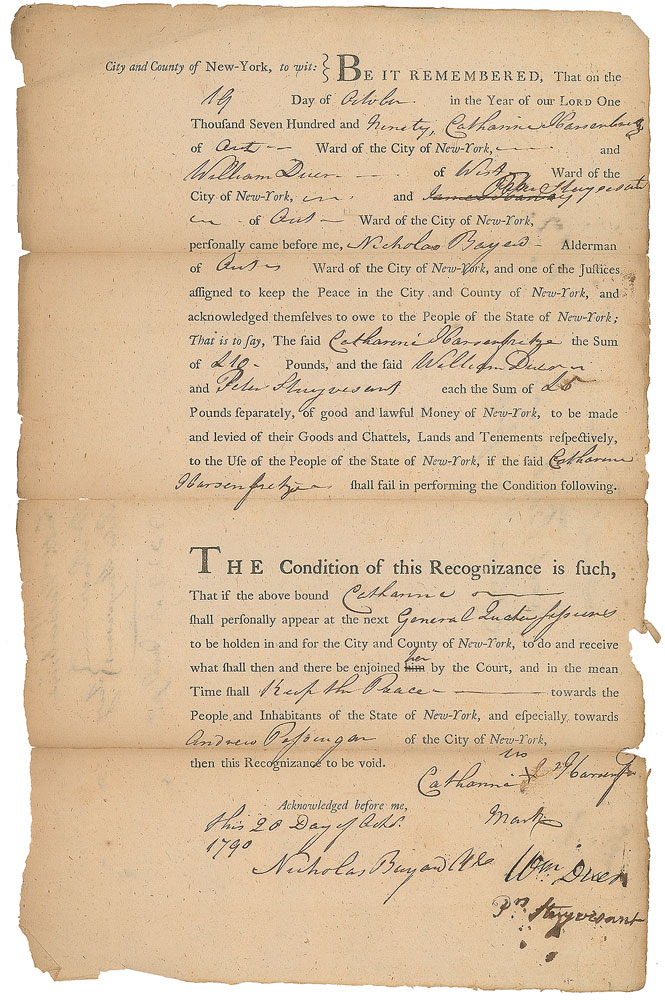 City and County of New-York, to wit: } BE IT REMEMBERED, That on the
19 Day of October in the Year of our LORD One
Thouſand Seven Hundred and Ninety, Catharine
of Out Ward of the City of New-York, and
William Duer of West Ward of the
City of New-York, and Peter Stuyvesant
of Out Ward of the City of New-York,
perſonally came before me, Nicholas Bayard Alderman
of Out Ward of the City of New-York, and one of the Juſtices
aſſigned to keep the Peace in the City and County of New-York, and
acknowledged themſelves to owe to the People of the State of New-York;
That is to ſay, The ſaid Catharine Harsenfretze the Sum
of £10 Pounds, and the ſaid William Duer
and Peter Stuyvesant each the Sum of £5
Pounds ſeparately, of good and lawful Money of New-York, to be made
and levied of their Goods and Chattels, Lands and Tenements reſpectively,
to the Uſe of the People of the State of New-York, if the ſaid Catharine
Harsenfretze ſhall fail in performing the Condition following.
THE Condition of this Recognizance is ſuch,
That if the above bound Catharine
ſhall perſonally appear at the next General
to be holden in and for the City and County of New-York, to do and receive
what ſhall then and there be enjoined him her by the Court, and in the mean
Time ſhall Keep the Peace towards the
People and Inhabitants of the State of New-York, and eſpecially, towards
Andrew of the City of New-York,
then this Recognizance to be void.
Catharine X
Acknowledged before me,
this 20 Day of Octr. Mark
1790
Nicholas Bayard Wm Duer
Pr. Stuyvesant